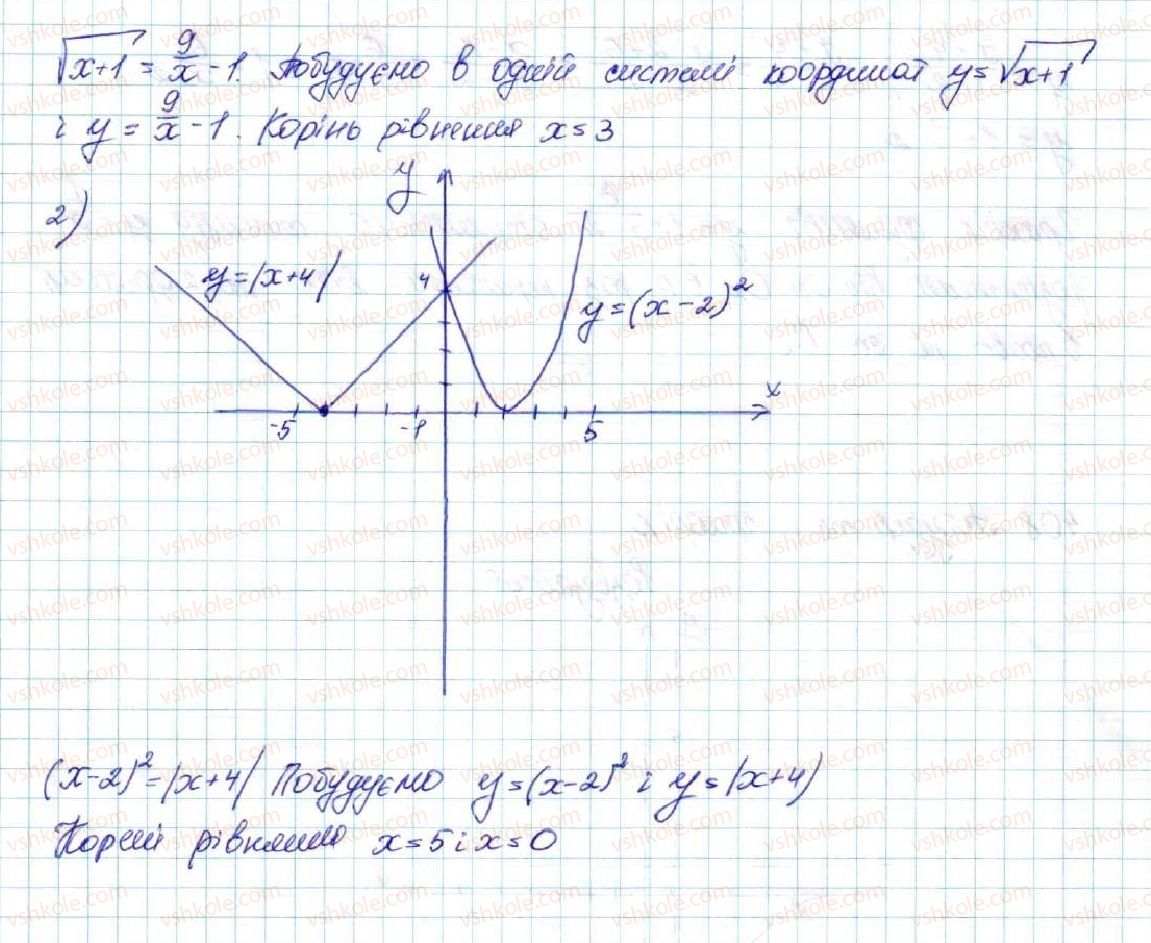 √x+1 = 9/x - 1. Побудуємо в одній системі координат y = √x+1
і y = 9/x - 1. Корінь рівняння x = 3
2)
y
y = |x+4|
4
y = (x-2)²
x
-5
-1
5
(x-2)² = |x+4| Побудуємо y = (x-2)² і y = |x+4|
Корені рівняння x = 5 і x = 0
vshkole.com